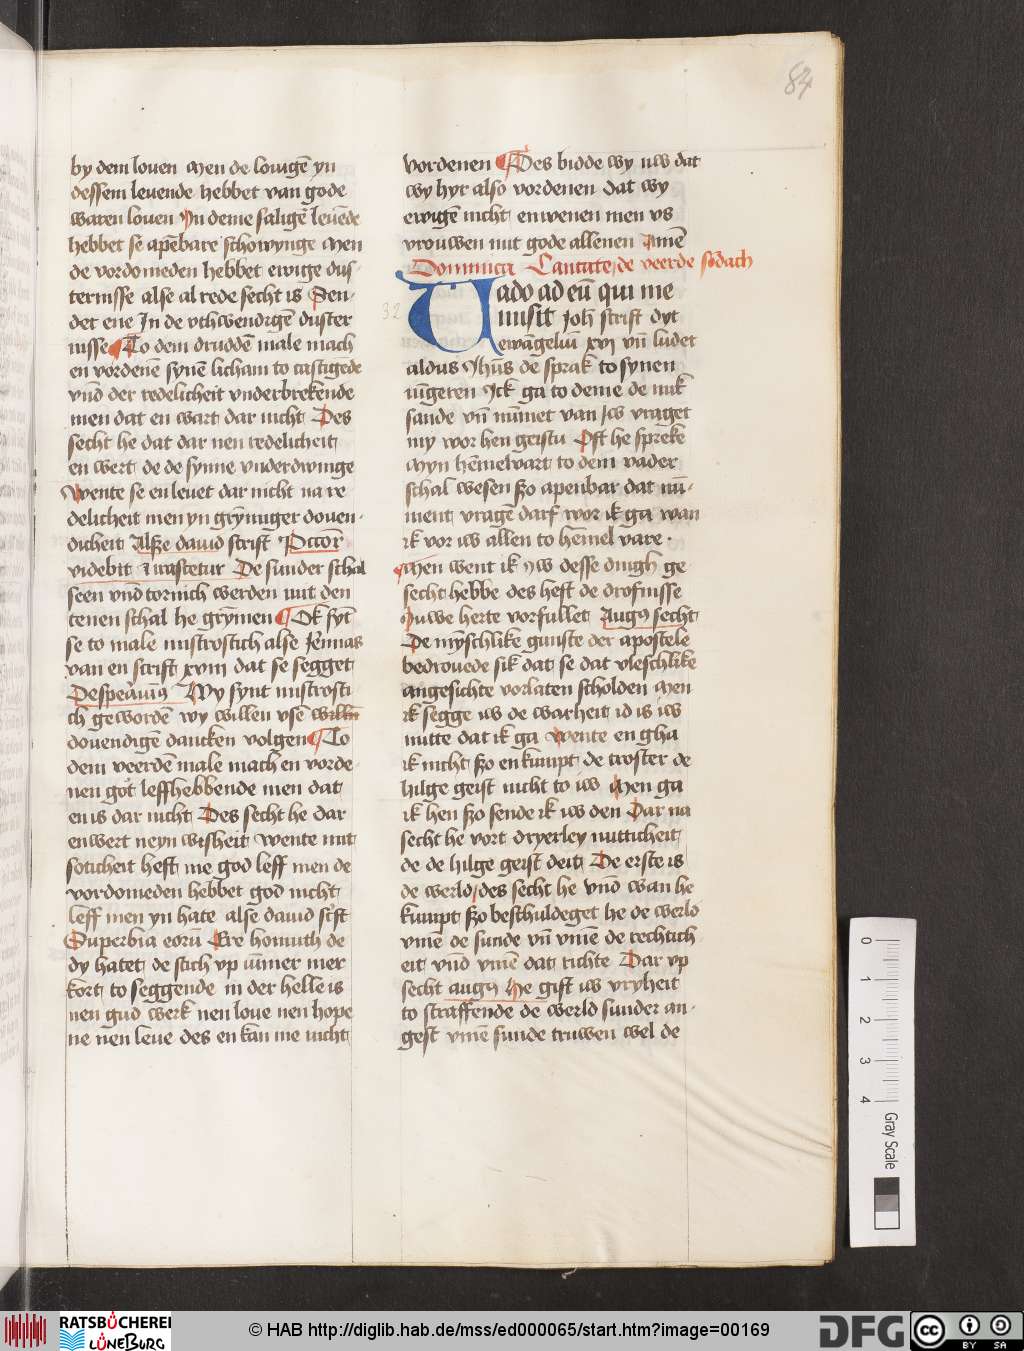 84
by dem louen Men de louigē yn
dessem leuende hebbet van gode
waren louen In deme saligē leuēde
hebbet se apēbare schowynge Men
de vordomeden hebbet ewige dus-
ternisse alse al rede secht is Sen-
det ene In de vthwendigē duster
nisse To dem druddē male mach
en vordenē synē licham to castigēde
vnd der redelicheit vnderbrekende
men dat en wart dar nicht Des
secht he dat dar nen redelicheit
en wert de de synne vnderdwinge
Wente se en leuet dar nicht na re
delicheit men yn grymmiger douen-
dicheit Alse dauid scrift Pctōr
videbit & irascetur De sunder schal
seen vnd tornich werden mit den
tenen schal he grymmen Ok synt
se to male mistrostich alse
van en scrift xviij dat se segget
Wy synt mistrosti
ch gewordē wy willen vsē
douendigē dancken volgen To
dem veerdē male mach en vorde-
nen got leffhebbende men dat
en is dar nicht Des secht he dar
enwert neyn wisheit Wente mit
soticheit heft me god leff men de
vordomeden hebbet god nicht
leff men yn hate alse dauid scrift
Superbia eorū Ere homuth de
dy hatet de stich vp vmmer mer
kort to seggende in der helle is
nen gud werk nen loue nen hope
ne nen leue des en kan me nicht
vordenen Des bidde wy uw dat
wy hyr also vordenen dat wy
ewigē nicht enwenen men vs
vrouwen mit gode allenen Amē
Dominica Cantate de veerde sōdach
32
Uado ad eū qui me
misit Joh scrift dyt
ewāgeliū xvj vn ludet
aldus Ihūs de sprak to synen
iūgeren Ick ga to deme de mik
sande vn nūmet van iw vraget
my wor hen geistu Oft he spreke
Myn hēmeluart to dem vader
schal wesen szo apenbar dat nū-
ment vragē darf wor ik ga wan
ik vor iw allen to hēmel vare
Men went ik iw desse dingh ge
secht hebbe des heft de drofnisse
Iuwe herte vorfullet Augus secht
De mȳschlike gunste der apostele
bedrouede sik dat se dat vleschlike
angesichte vorlaten scholden Men
ik segge iw de warheit id is iw
nutte dat ik ga Wente en gha
ik nicht szo enkumpt de troster de
hilge geist nicht to iw Men ga
ik hen szo sende ik iw den Dar na
secht he vort dryerley nutticheit
de de hilge geist deit De erste is
de werld des secht he vnd wan he
kumpt szo beschuldeget he de werld
vmē de sunde vn vmē de rechtich
eit vnd vmē dat richte Dar vp
secht augus he gift iw vryheit
to straffende de werld sunder an-
gest vmē sunde truwen wel de
0 1 2 3 4
Gray Scale
RATSBÜCHEREI LÜNEBURG
© HAB http://diglib.hab.de/mss/ed000065/start.htm?image=00169
DFG
cc BY SA